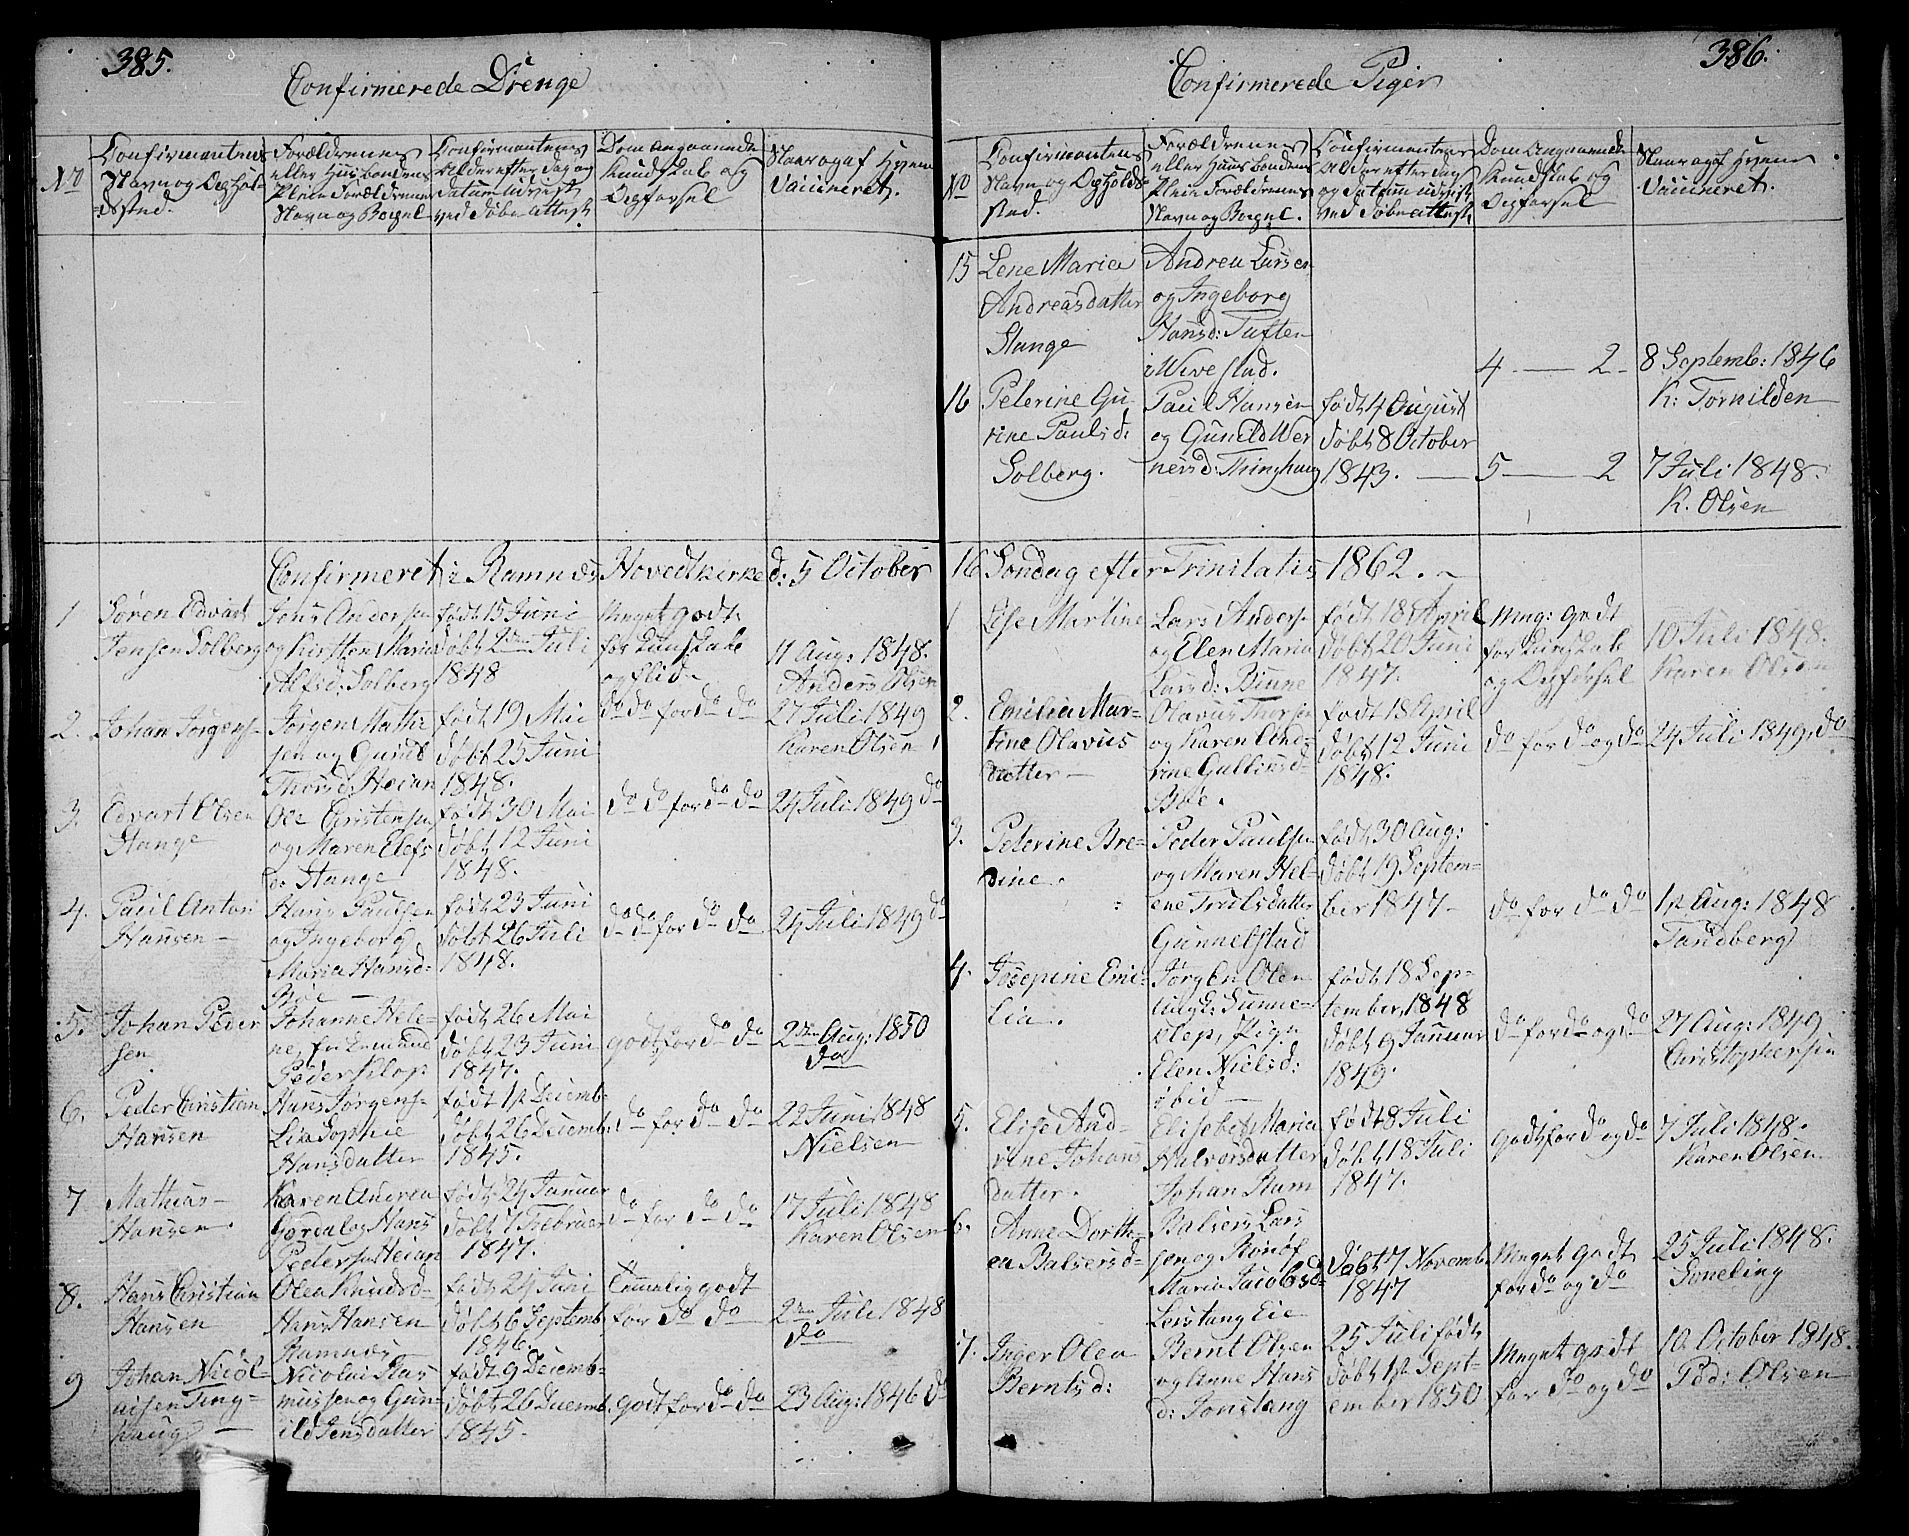 385.
Confirmerede Drenge
No
Confirmantens
Navn og Ophol-
dsted.
Forældrenes
eller Huusbondens
Pleie Forældrenes
Navn og Boepel
Confirmantens
Alder efter Dag og
Datum udviist
ved Døbe attest
Dom angaaende
Kundskab og
Opførsel
Naar og af hvem
Vaccineret.
Confirmeret i Ramnæs Hovedtkirke d: 5 October
1
Søren Edvart
Jensen Solberg
Jens Andersen
og Kirsten Maria
Alfsd: Solberg
født 15 Juni
døbt 2den Juli
1848
Meget godt
for Kunskab
og flid
11 Aug: 1848.
Anders Olsen
2.
Johan Jørgens-
Jørgen Mathi-
sen og
Thorsd: Heian
født 19 Mai
døbt 25 Juni
1848.
do do for do do
27 Juli 1849
Karen Olsen
3.
Edvart Olsen
Stange
Ole Christensen
og Maren Elefs
d: Stange
født 30 Mai
døbt 12 Juni
1848.
do do for do do
24 Juli 1849 do
4.
Paul Anton
Hansen
Hans Paulsen
og Ingeborg
Maria Hansd-
født 23 Juni
døbt 26 Juli
1848.
do do for do do
24 Juli 1849 do
5.
Johan Peder
sen
Johanne Hele-
ne,
født 26 Mai
døbt 23 Juni
1847.
godt for do do
2den Aug: 1850
do
6.
Peder Christian
Hansen
Hans Jørgens-
Lisa Sophie
Hansdatter
født 1st Decemb-
døbt 26 Decemb:
1845.
do for do do
22 Juni 1848
Nielsen
7
Mathias
Hansen.
Karen Andrea
og Hans
Pedersen Heian
født 24 Januar
døbt 1 Februar
1847.
do for do do
17 Juli 1848
Karen Olsen
8.
Hans Christian
Hansen
Olea Knudsd-
Hans Hansen
Ramnæs
født 24 Juni
døbt 6 Septemb
1846.
Temmelig godt
for do do
2den Juli 1848
do
9
Johan Nicol-
aisen Ting-
haug
Nicolai Ras
mussen og Gun-
ild Jensdatter
født 9 Decemb-
døbt 26 Decemb.
1845.
godt for do do
23 Aug: 1846 do
386.
Confirmerede Piger
No
Confirmantens
Navn og Opholds
sted.
Forældrenes
eller Huusbondens
Pleie Forældrenes
Navn og Boepel.
Confirmantens
Alder efter Dag
og Datum udviist
ved Døbe attest
Dom Angaaende
Kundskab og
Opførsel
Naar og af hvem
Vaccineret.
15
Lene Maria
Andreasdatter
Stange
Andrea Larsen
og Ingeborg
Hansd: Tuften
i Wivestad.
4 — 2
8 Septemb: 1846
K: Tornilden
16
Peterine Gu-
rine Paulsd:
Solberg.
Paul Hansen
og Gunild Wer
nersd: Thinghaug
født 4 August
døbt 8 October
1843.
5 — 2
7 Juli 1848.
K. Olsen
16 Søndag efter Trinitatis 1862.
1
Else Martine
Lars Anders-
og Elen Maria
Larsd:
født 18 April
døbt 20 Juni
1847.
Meg: godt
for Kunskab
og Opførsel
10 Juli 1848.
Karen Olsen
2.
Emilia Mar-
tine Olavus
datter
Olavus Thorsen
og Karen And-
rine Gulliksd-
Bøe.
født 18 April
døbt 12 Juni
1848.
do for do og do
24 Juli 1849, do
3.
Peterine Bre-
dine.
Peder Paulsen
og Maren Hel-
ene Trulsdatter
Gunnelstad
født 30 Aug:
døbt 19 Septem-
ber 1847
do for do do
1st Aug: 1848
Tandberg
4.
Josepine Emi-
lia.
Jørgen Olsen
Elen Nielsd:
født 18 Sep-
tember 1848
døbt 9 Januar
1849.
do for do og do
27 Aug: 1849.
Christophersen
5.
Elise And-
rine Johans
datter.
Elisebet Maria
Halvorsdatter
Johan
født 8 Juli
døbt 18 Juli
1847.
godt for do og do
7 Juli 1848.
Karen Olsen
6.
Anne Dorthe-
ea Balsersd-
Balsers Lars
sen og Rønøf
Maria Jacobsd-
Leistang Eie
døbt 7 Novemb
1847
Meget godt
for do og do
25 Juli 1848.
Soneling
7.
Inger Olea
Berntsd:
Bernt Olsen
og Anne Hans
d: Jonstang
25 Juli født
døbt 1st Sept-
ember 1850
Meget godt
for do og do
10 October 1848.
Ped: Olsen